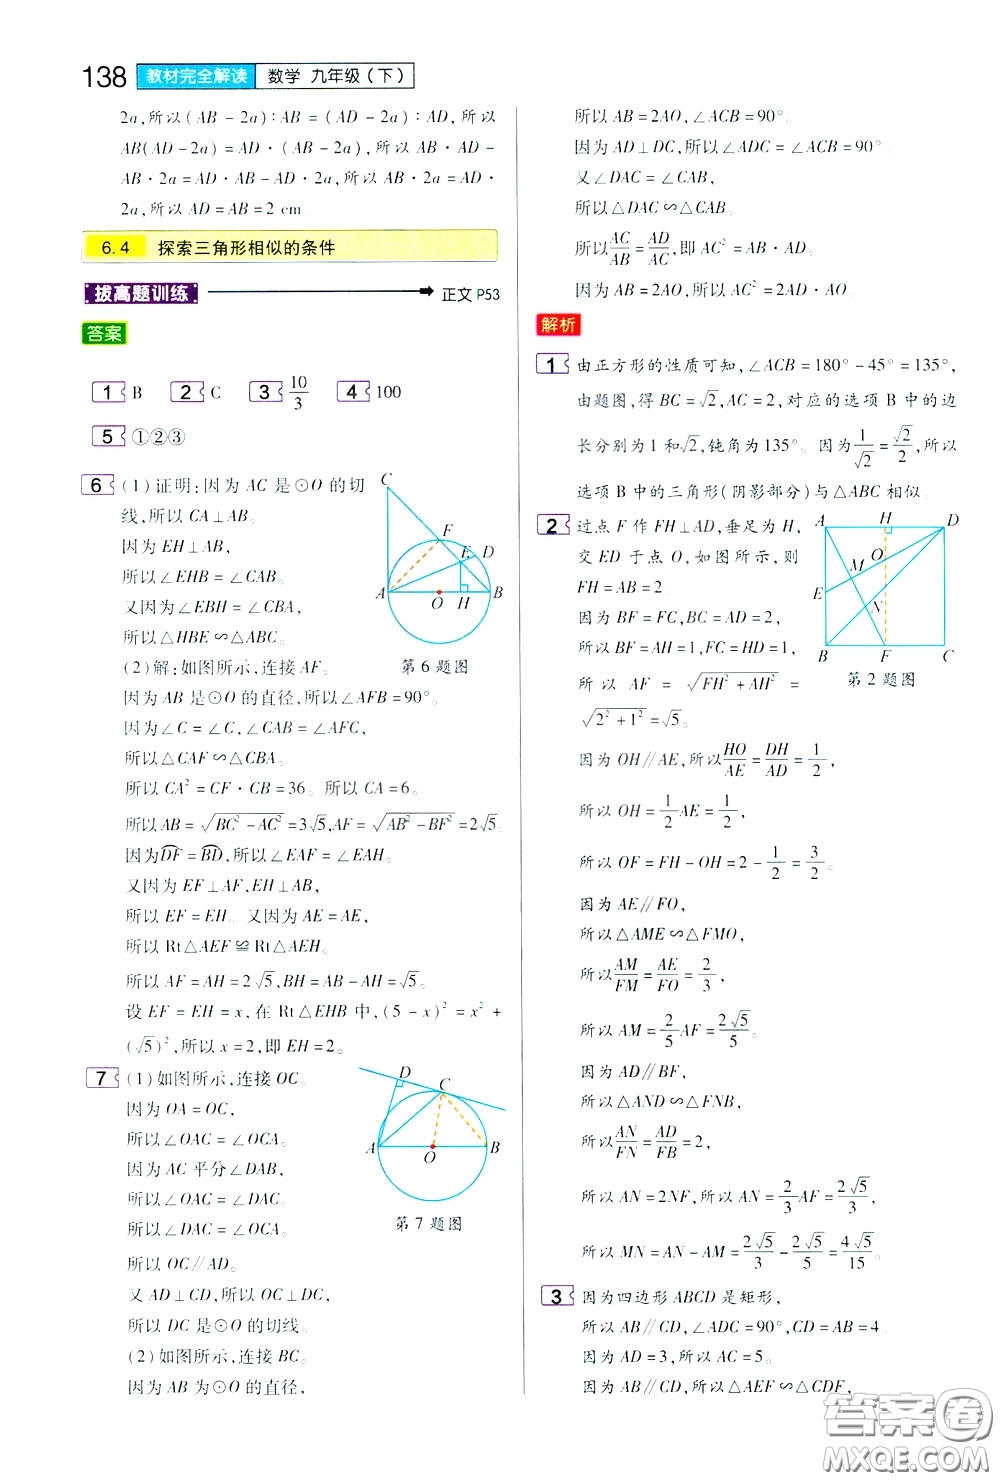 138 教材完全解读 数学 九年级(下)
2a,所以(AB-2a):AB=(AD-2a):AD,所以
AB(AD-2a)=AD·(AB-2a),所以AB·AD-
AB·2a=AD·AB-AD·2a,所以AB·2a=AD·
2a,所以AD=AB=2 cm
6.4 探索三角形相似的条件
拔高题训练 正文P53
答案
1 B 2 C 3 10/3 4 100
5 ①②③
6 (1)证明:因为AC是⊙O的切
线,所以CA⊥AB。
因为EH⊥AB,
所以∠EHB=∠CAB。
又因为∠EBH=∠CBA,
所以△HBE∽△ABC。
(2)解:如图所示,连接AF。
C F E D A O H B
第6题图
因为AB是⊙O的直径,所以∠AFB=90°。
因为∠C=∠C,∠CAB=∠AFC,
所以△CAF∽△CBA。
所以CA²=CF·CB=36。所以CA=6。
所以AB=√(BC²-AC²)=3√5,AF=√(AB²-BF²)=2√5。
因为⌒DF=⌒BD,所以∠EAF=∠EAH。
又因为EF⊥AF,EH⊥AB,
所以EF=EH。又因为AE=AE,
所以Rt△AEF≌Rt△AEH。
所以AF=AH=2√5,BH=AB-AH=√5。
设EF=EH=x,在Rt△EHB中,(5-x)²=x²+
(√5)²,所以x=2,即EH=2。
7 (1)如图所示,连接OC。
因为OA=OC,
所以∠OAC=∠OCA。
因为AC平分∠DAB,
所以∠OAC=∠DAC。
所以∠DAC=∠OCA。
所以OC∥AD。
又AD⊥CD,所以OC⊥DC,
所以DC是⊙O的切线。
(2)如图所示,连接BC。
因为AB为⊙O的直径,
D C A O B
第7题图
所以AB=2AO,∠ACB=90°。
因为AD⊥DC,所以∠ADC=∠ACB=90°。
又∠DAC=∠CAB,
所以△DAC∽△CAB。
所以AC/AB=AD/AC,即AC²=AB·AD。
因为AB=2AO,所以AC²=2AD·AO。
解析
1 由正方形的性质可知,∠ACB=180°-45°=135°,
由题图,得BC=√2,AC=2,对应的选项B中的边
长分别为1和√2,钝角为135°。因为1/√2=√2/2,所以
选项B中的三角形(阴影部分)与△ABC相似
2 过点F作FH⊥AD,垂足为H,
交ED于点O,如图所示,则
FH=AB=2
因为BF=FC,BC=AD=2,
所以BF=AH=1,FC=HD=1,
所以AF=√(FH²+AH²)=
√(2²+1²)=√5。
A H D O M E N B F C
第2题图
因为OH∥AE,所以HO/AE=DH/AD=1/2,
所以OH=1/2AE=1/2,
所以OF=FH-OH=2-1/2=3/2,
因为AE∥FO,
所以△AME∽△FMO,
所以AM/FM=AE/FO=2/3,
所以AM=2/5AF=2√5/5。
因为AD∥BF,
所以△AND∽△FNB,
所以AN/FN=AD/FB=2,
所以AN=2NF,所以AN=2/3AF=2√5/3,
所以MN=AN-AM=2√5/3-2√5/5=4√5/15。
3 因为四边形ABCD是矩形,
所以AB∥CD,∠ADC=90°,CD=AB=4
因为AD=3,所以AC=5。
因为AB∥CD,所以△AEF∽△CDF,
答案圈
MXQE.COM